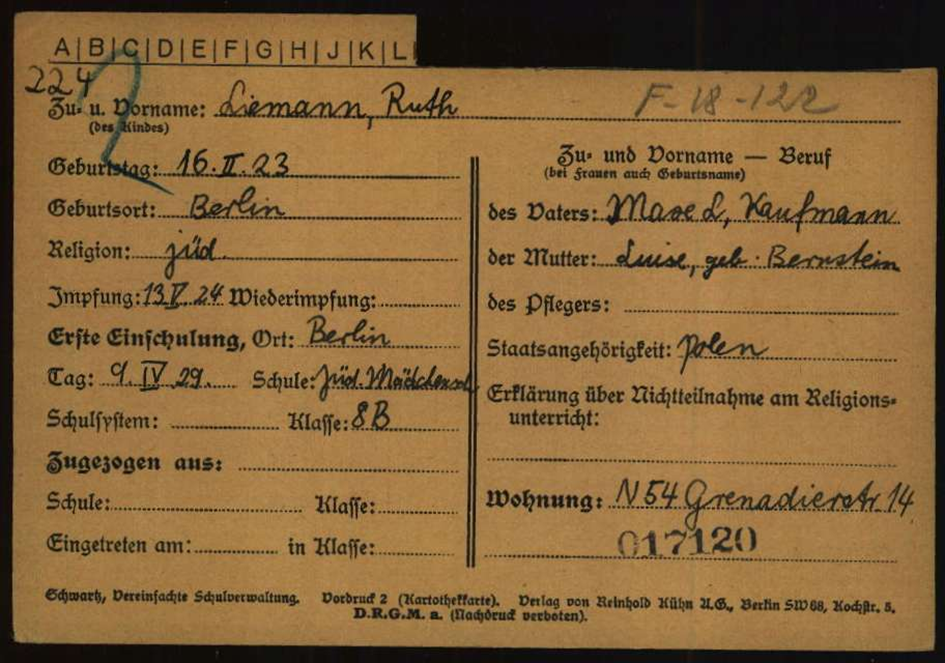 A|B|C|D|E|F|G|H|J|K|L
224
Zu- u. Vorname: Liemann, Ruth F-18-122
(des Kindes)
Geburtstag: 16.II.23
Geburtsort: Berlin
Religion: jüd.
Impfung: 13 V. 24 Wiederimpfung:
Erste Einschulung, Ort: Berlin
Tag: 9. IV 29. Schule: Jüd. Mädchensch
Schulsystem: Klasse: 8B
Zugezogen aus:
Schule: Klasse:
Eingetreten am: in Klasse:
Zu- und Vorname — Beruf
(bei Frauen auch Geburtsname)
des Vaters: L, Kaufmann
der Mutter: Luise, geb. Bernstein
des Pflegers:
Staatsangehörigkeit: Polen
Erklärung über Nichtteilnahme am Religions-
unterricht:
Wohnung: N54 Grenadierstr 14
017120
Schwartz, Vereinfachte Schulverwaltung. Vordruck 2 (Kartothekkarte). Verlag von Reinhold Kühn A.G., Berlin SW68, Kochstr. 5.
D.R.G.M. a. (Nachdruck verboten).